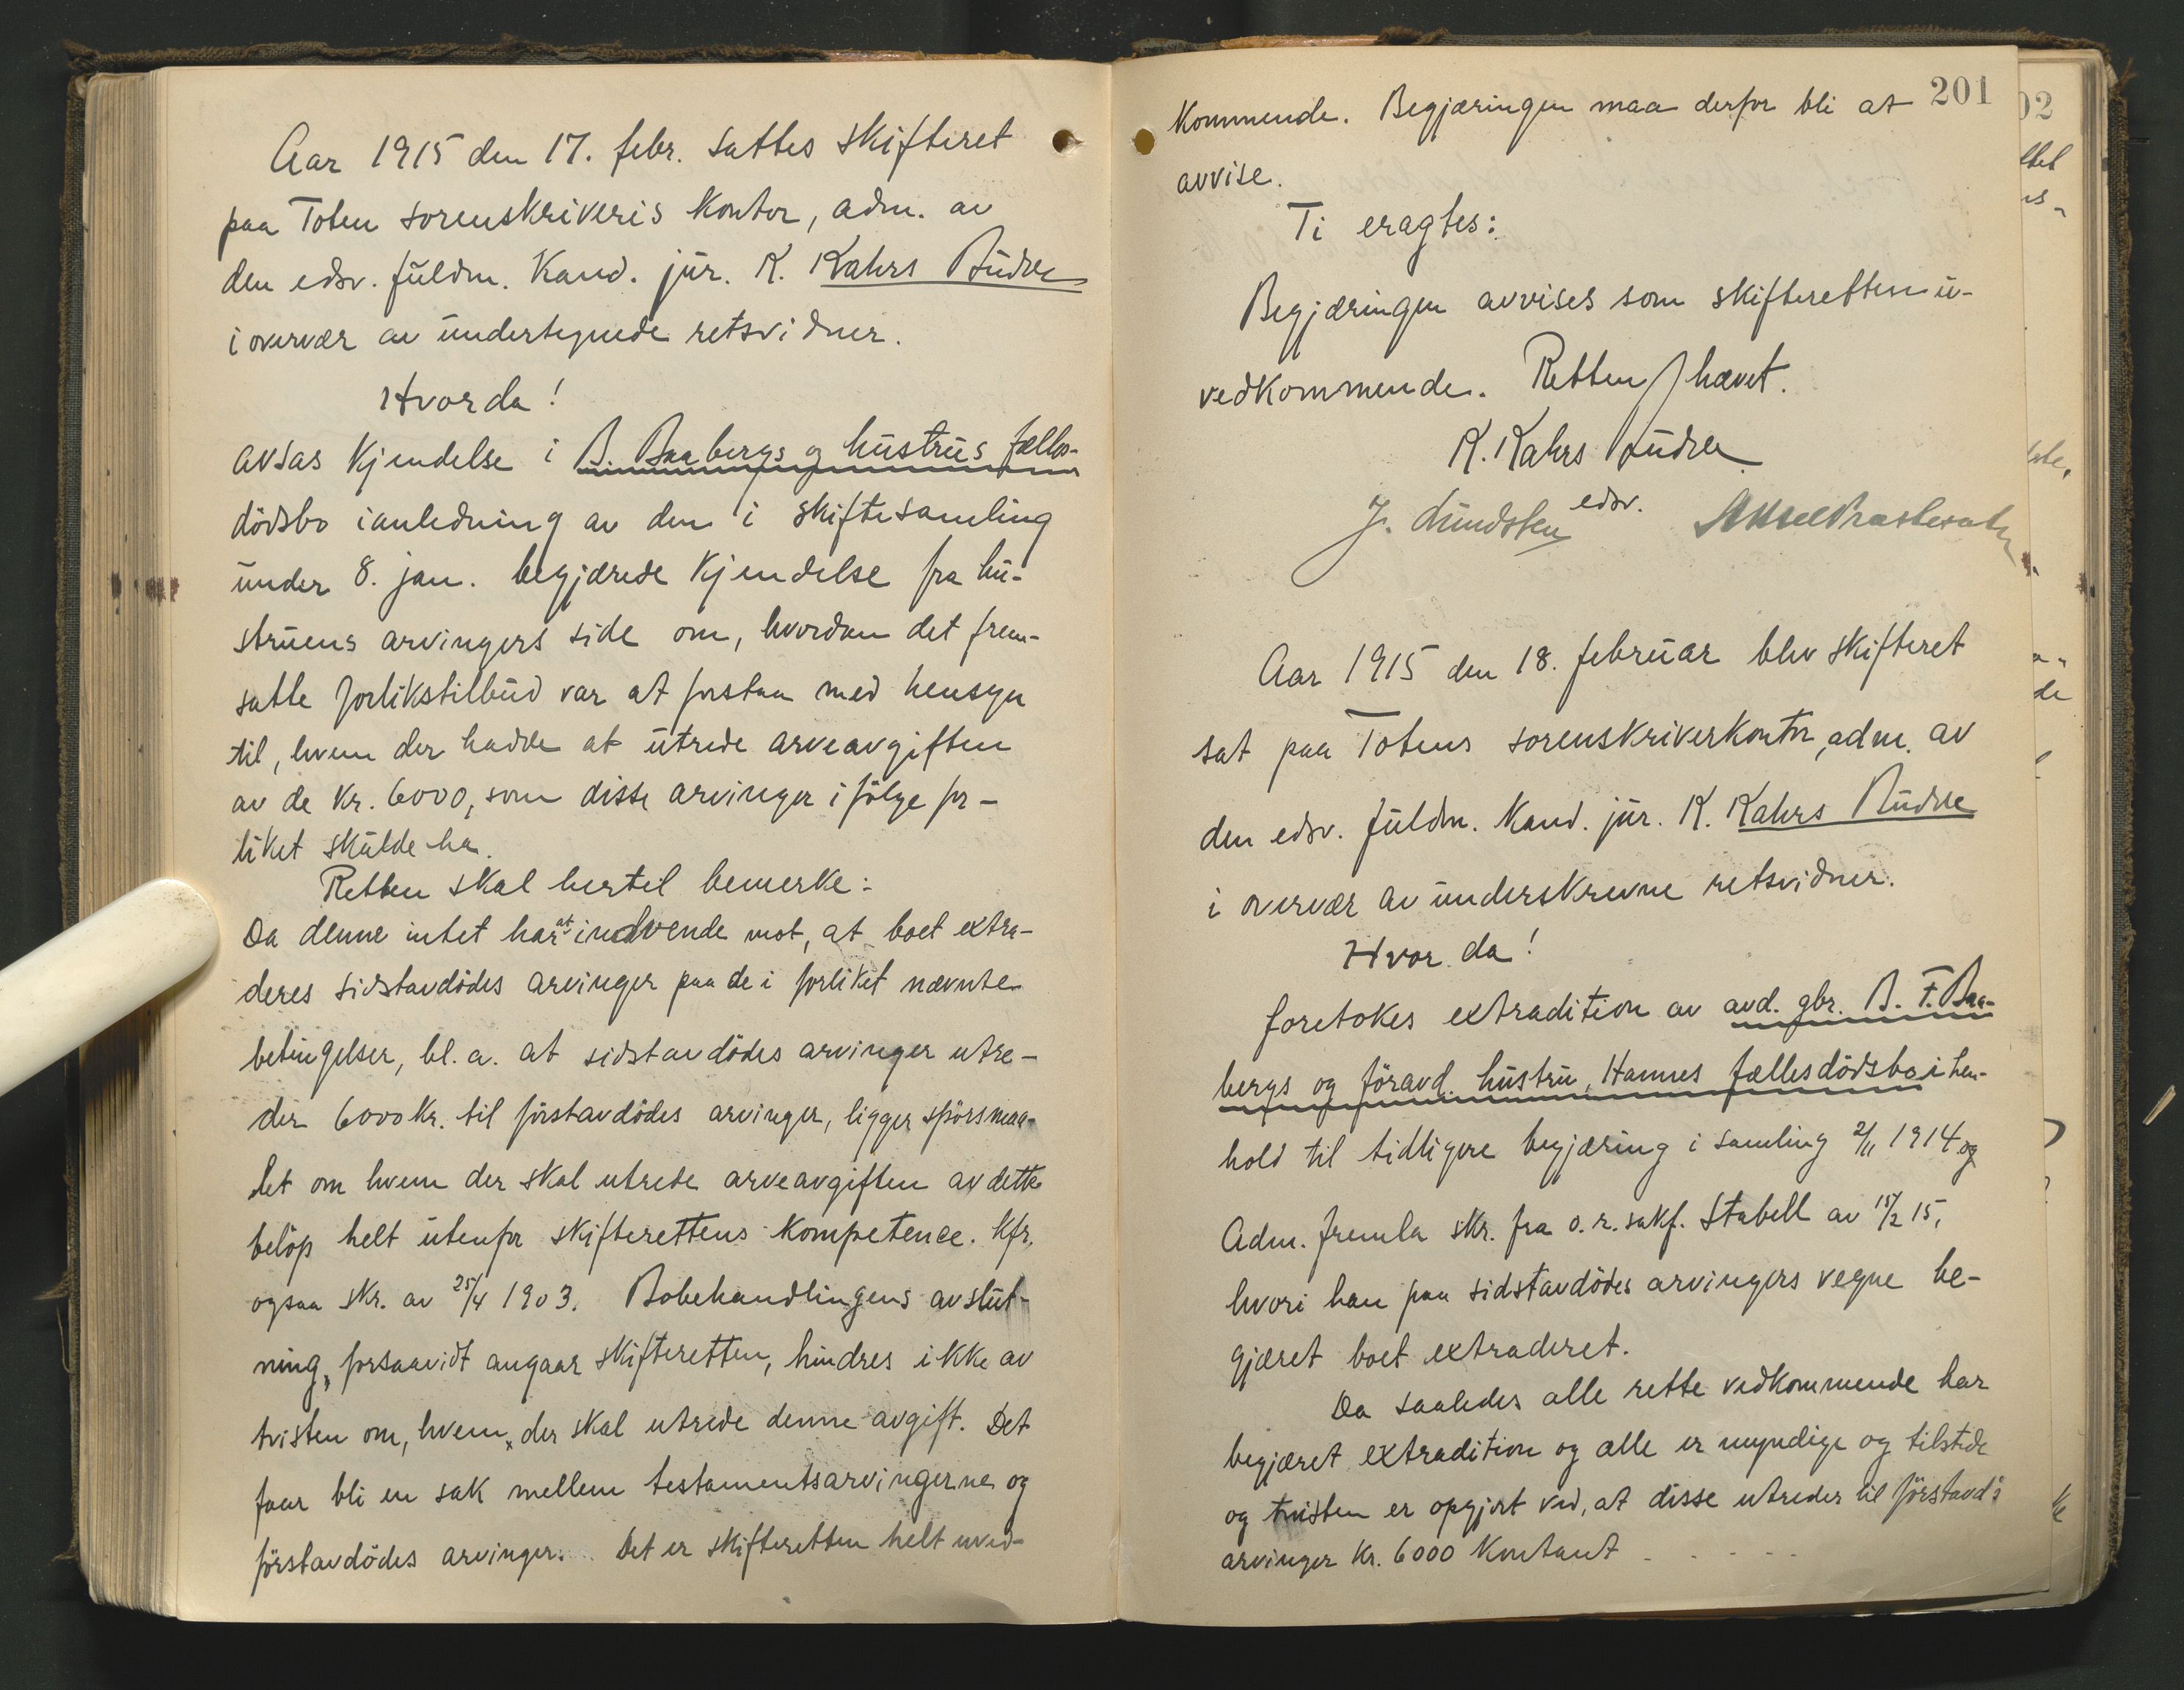 Aar 1915 den 17. febr. sattes skifteret
paa Toten sorenskriveris kontor, adm. av
den edsv. fuldm. kand. jur. K. Kahrs Budde
i overvær av undertegnede retsvidner.
Hvorda!
avsas kjendelse i B. Baabergs og hustrus fælles-
dödsbo i anledning av den i skiftesamling
under 8. jan. begjærede kjendelse fra hu-
struens arvingers side om, hvordan det frem-
satte forlikstilbud var at forstaa med hensyn
til, hvem der hadde at utrede arveavgiften
av de kr. 6000, som disse arvinger ifölge for-
liket skulde ha.
Retten skal hertil bemerke:
Da denne intet har at indvende mot, at boet extra-
deres sidstavdödes arvinger paa de i forliket nævnte
betingelser, bl. a. at sidstavdödes arvinger utre-
der 6000 kr. til förstavdödes arvinger, ligger spörsmaa-
let om hvem der skal utrede arveavgiften av dette
belöp helt utenfor skifterettens kompetence. kfr.
ogsaa skr. av 25/4 1903. Bobehandlingens avslut-
ning, forsaavidt angaar skifteretten, hindres ikke av
tvisten om, hvem, der skal utrede denne avgift. Det
faar bli en sak mellem testamentsarvingerne og
förstavdödes arvinger. Det er skifteretten helt uved-
201
kommende. Begjæringen maa derfor bli at
avvise.
Ti eragtes:
Begjæringen avvises som skifteretten u-
vedkommende. Retten hævet.
K. Kahrs Budde
edsv.
J. Lundsten
Aar 1915 den 18. februar blev skifteret
sat paa Totens sorenskriverkontor, adm. av
den edsv. fuldm. kand. jur. K. Kahrs Budde
i overvær av underskrevne retsvidner.
Hvor da!
foretokes extradition av avd. gbr. B. F. Baa-
bergs og föravd. hustru, Hannes fællesdödsbo i hen-
hold til tidligere begjæring i samling 2/11 1914 og
Adm. fremla skr. fra o. r. sakf. Stabell av 15/2 15,
hvori han paa sidstavdödes arvingers vegne be-
gjæret boet extraderet.
Da saaledes alle rette vedkommende har
begjæret extradition og alle er myndige og tilstede
og tvisten er opgjort ved, at disse utreder til förstavd's
arvinger kr. 6000 kontant - - - - -